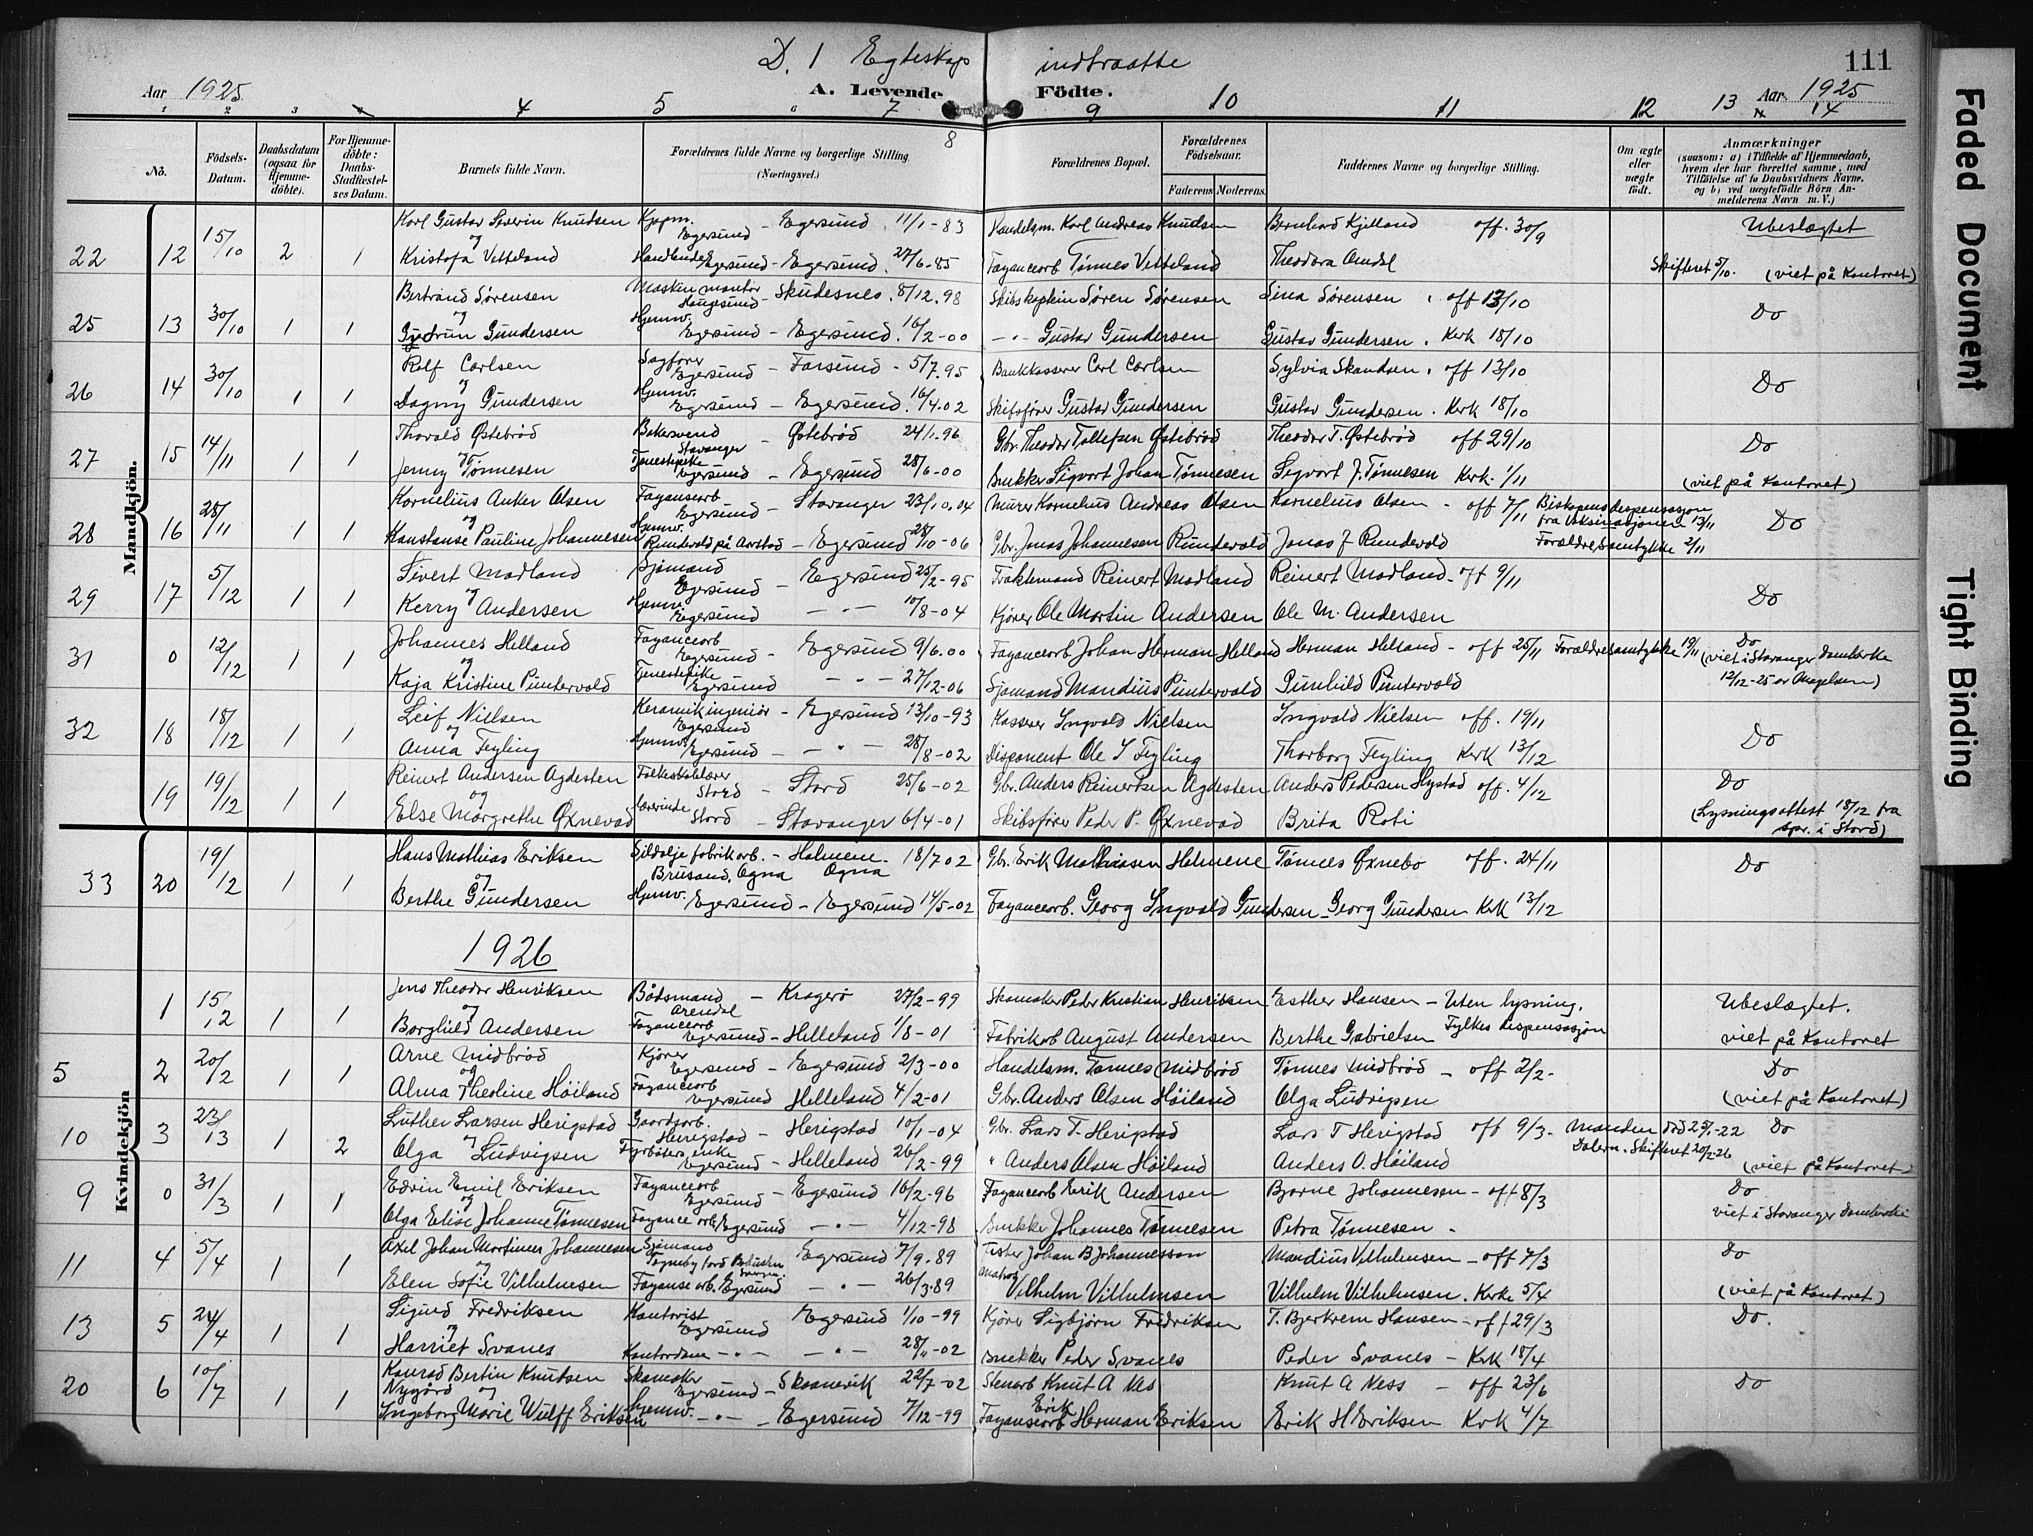 D. 1 Egteskap indtraatte
111
Aar 1925
A. Levende Födte.
Aar 1925
1 2 3 4 5 6 7 8 9 10 11 12 13 14
No.
Födsels-Datum.
Daabsdatum (ogsaa for Hjemmedöbte).
For Hjemmedöbte: Daabs-Stadfæstelses Datum.
Barnets fulde Navn.
Forældrenes fulde Navne og borgerlige Stilling. (Næringsvei.)
Forældrenes Bopæl.
Forældrenes Födselsaar.
Faderens Moderens.
Faddernes Navne og borgerlige Stilling.
Om ægte eller uægte födt.
Anmærkninger
(saasom: a) i Tilfælde af Hjemmedaab, hvem der har forrettet samme, med Tilföielse af to Daabsvidners Navne, og b) ved uægtefödte Börn Anmelderens Navn m. V.)
Mandkjön.
22 12 15/10 2 1 Karl Gustav Severin Knudsen Kjøpm. Egersund - Egersund 11/1-83 Handelsm. Karl Andreas Knudsen Bernhard Kjelland off. 30/9 Ubeslægtet
og Kristofa Vetteland Egersund - Egersund. 27/6-85 Fayancearb Tønnes Vetteland Theodora Skifteret 5/10. (viet på Kontoret)
25 13 30/10 1 1 Bertrand Sørensen Maskinmontør Haugesund - Skudesnes. 8/12.98 Skibskaptein Søren Sørensen Sina Sørensen off 13/10 Do
og Gudrun Gundersen Hjemv. Egersund - Egersund. 16/2-00 -"- Gustav Gundersen Gustav Gundersen. Kerk 18/10
26 14 30/10 1 1 Rolf Carlsen Sagfører Egersund - Farsund - 5/7.95 Bankkasserer Carl Carlsen Sylvia Skandsen. off 13/10 Do
og Dagny Gundersen Hjemv. Egersund - Egersund. 16/4.02 Skibsfører Gustav Gundersen Gustav Gundersen. Kerk 18/10
27 15 14/11 1 1 Thorald Østebrød Bakersvend Stavanger - Østebrød 24/1.96 Gbr. Theodor Tollefsen Østebrød Theodor T. Østebrød off 29/10 Do
og Jenny Tønnesen Tjenestepike Egersund - Egersund 28/6-00 Snekker Sigvart Johan Tønnesen Sigvart J. Tønnesen Kerk. 1/11 (viet på Kontoret)
28 16 28/11 1 1 Kornelius Anker Olsen Fayansearb Egersund - Stavanger 23/10.04 Murer Kornelius Andreas Olsen Kornelius Olsen - off 7/11 Biskopens dispensasjon fra Vaksinasjonen 13/11 Do
og Konstanse Pauline Johannesen Hjemv. Rundevold på Aarstad - Egersund 28/10-06 Gbr. Jonas Johannesen Rundevold Jonas J Rundevold Forældresamtykke 2/11
29 17 5/12 1 1 Sivert Madland Sjømand Egersund - Egersund 25/2-95 Reinert Madland Reinert Madland - off 9/11 Do
og Kerry Andersen Hjemv. Egersund -"- 10/8-04 Kjører Ole Martin Andersen Ole M. Andersen
31 0 12/12 1 1 Johannes Helland Fayancearb Egersund - Egersund 9/6.00 Fayancearb Johan Herman Helland Herman Helland - off 25/11 Forældresamtykke 19/11 Do (viet i Stavanger Domkerke
og Kaja Kristine Puntervold Tjenestepike Egersund -"- 27/12-06 Sjømand Mandius Puntervold Gunhild Puntervold 12/12-25 av Magelsen)
32 18 18/12 1 1 Leif Nielsen Keramikingeniør Egersund - Egersund 13/10-93 Kasserer Ingvald Nielsen Ingvald Nielsen off. 19/11 Do
og Anna Feyling Hjemv. Egersund -"- 28/8-02 Disponent Ole I Feyling Thorborg Feyling Kerk 13/12
19 19/12 1 1 Reinert Andersen Agdesten Folkeskolelærer Stord - Stord 25/6-02 Gbr. Anders Reinertsen Agdesten Anders Pedersen Hystad off. 4/12 Do
og Else Margrethe Øxnevad Lærerinde Stord - Stavanger 6/4-01 Skibsfører Peder P. Øxnevad Brita Roti (Lysningsattest 18/12 fra spr. i Stord)
33 20 19/12 1 1 Hans Mathias Eriksen Sildoljefabrikarb. Brusand, Ogna - Holmen. Ogna 18/7 02 Gbr. Erik Mathiasen Holmene Tønnes Øxnebo off. 24/11 Do
og Berthe Gundersen Hjemv. Egersund - Egersund 14/5-02 Fayancearb. Georg Ingvald Gundersen Georg Gundersen Kerk 13/12
1926
Kvindekjön
1 15/2 1 1 Jens Theodor Henriksen Bådsmand Arendal - Kragerø 27/2-99 Skomaker Peder Kristian Henriksen Esther Hansen - Uten lysning. Ubeslægtet.
og Borghild Andersen Fayancearb Egersund - Helleland 1/8-01 Fabrikarb August Andersen Berthe Gabrielsen Fylkesdispensasjon viet på Kontoret
5 2 20/2 1 1 Arne Midbrød Kjører Egersund - Egersund 2/3-00 Handelsm. Tønnes Midbrød Tønnes Midbrød - off 2/2- Do
og Alma Theoline Høiland Fayancearb Egersund Helleland 4/2-01 Gbr. Anders Olsen Høiland Olga Ludvigsen (viet på Kontoret)
10 3 23/3 1 2 Luther Larsen Herigstad Gaardsarb. Herigstad - Herigstad 10/1-04 Gbr. Lars T. Herigstad Lars T Herigstad off 9/3- Manden død Do
og Olga Ludvigsen Fyrbøters enke Egersund - Helleland 26/2-99 " Anders Olsen Høiland Anders O. Høiland Skifteret 20/2-26 (viet på Kontoret)
9 0 31/3 1 1 Edvin Emil Eriksen Fayancearb Egersund - Egersund 16/2-96 Fayancearb Erik Andersen Bjarne Johannesen - off 8/3 Do
og Olga Elise Johanne Tønnesen Fayancearb Egersund -"- 4/12-98 Snekker Johannes Tønnesen Petra Tønnesen - viet i Stavanger Domkerke
11 4 5/4 1 1 Axel Johan Mortimer Johannesen Sjømand Egersund 7/9.89 Fisker Johan B Johannesson Mandius Vilhelmsen - off 7/3 Do
og Elen Sofie Vilhelmsen Fayansearb. Egersund -"- 26/3.89 Matros Vilhelm Vilhelmsen Vilhelm Vilhelmsen. Kerke 5/4 (viet på Kontoret)
13 5 24/4 1 1 Sigurd Fredriksen Kontorist Egersund Egersund 1/10-99 Kjører Sigbjørn Fredriksen T. Bjerkrem Hansen - off 29/3 Do.
og Harriet Svanes Kontordame -"- -"- 28/11-02 Snekker Peder Svanes Peder Svanes - Kerk 18/4
20 6 10/7 1 1 Konrad Bertin Knutsen Nygård Skomaker Egersund - Skaanevik 22/7-02 Stenarb Knut A Nes Knut A Ness - off 23/6 Do
og Ingeborg Marie Wulff Eriksen Hjemv. -"- Egersund 7/12-99 Fayansearb Erik Herman Eriksen Erik H Eriksen Kerk 4/7
Faded Document
Tight Binding